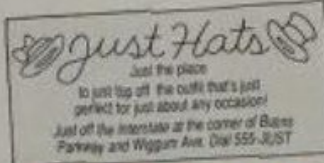 Just Hats
Just the place
to just top off the outfit that's just
perfect for just about any occasion!
Just off the Interstate at the corner of Burns
Parkway and Wiggum Ave. Dial 555-JUST